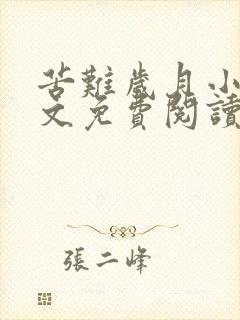 苦難歲月小
文免費閱讀
張二峰